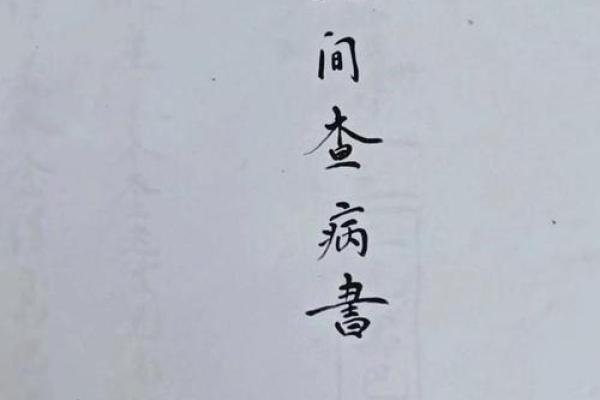 间查病書